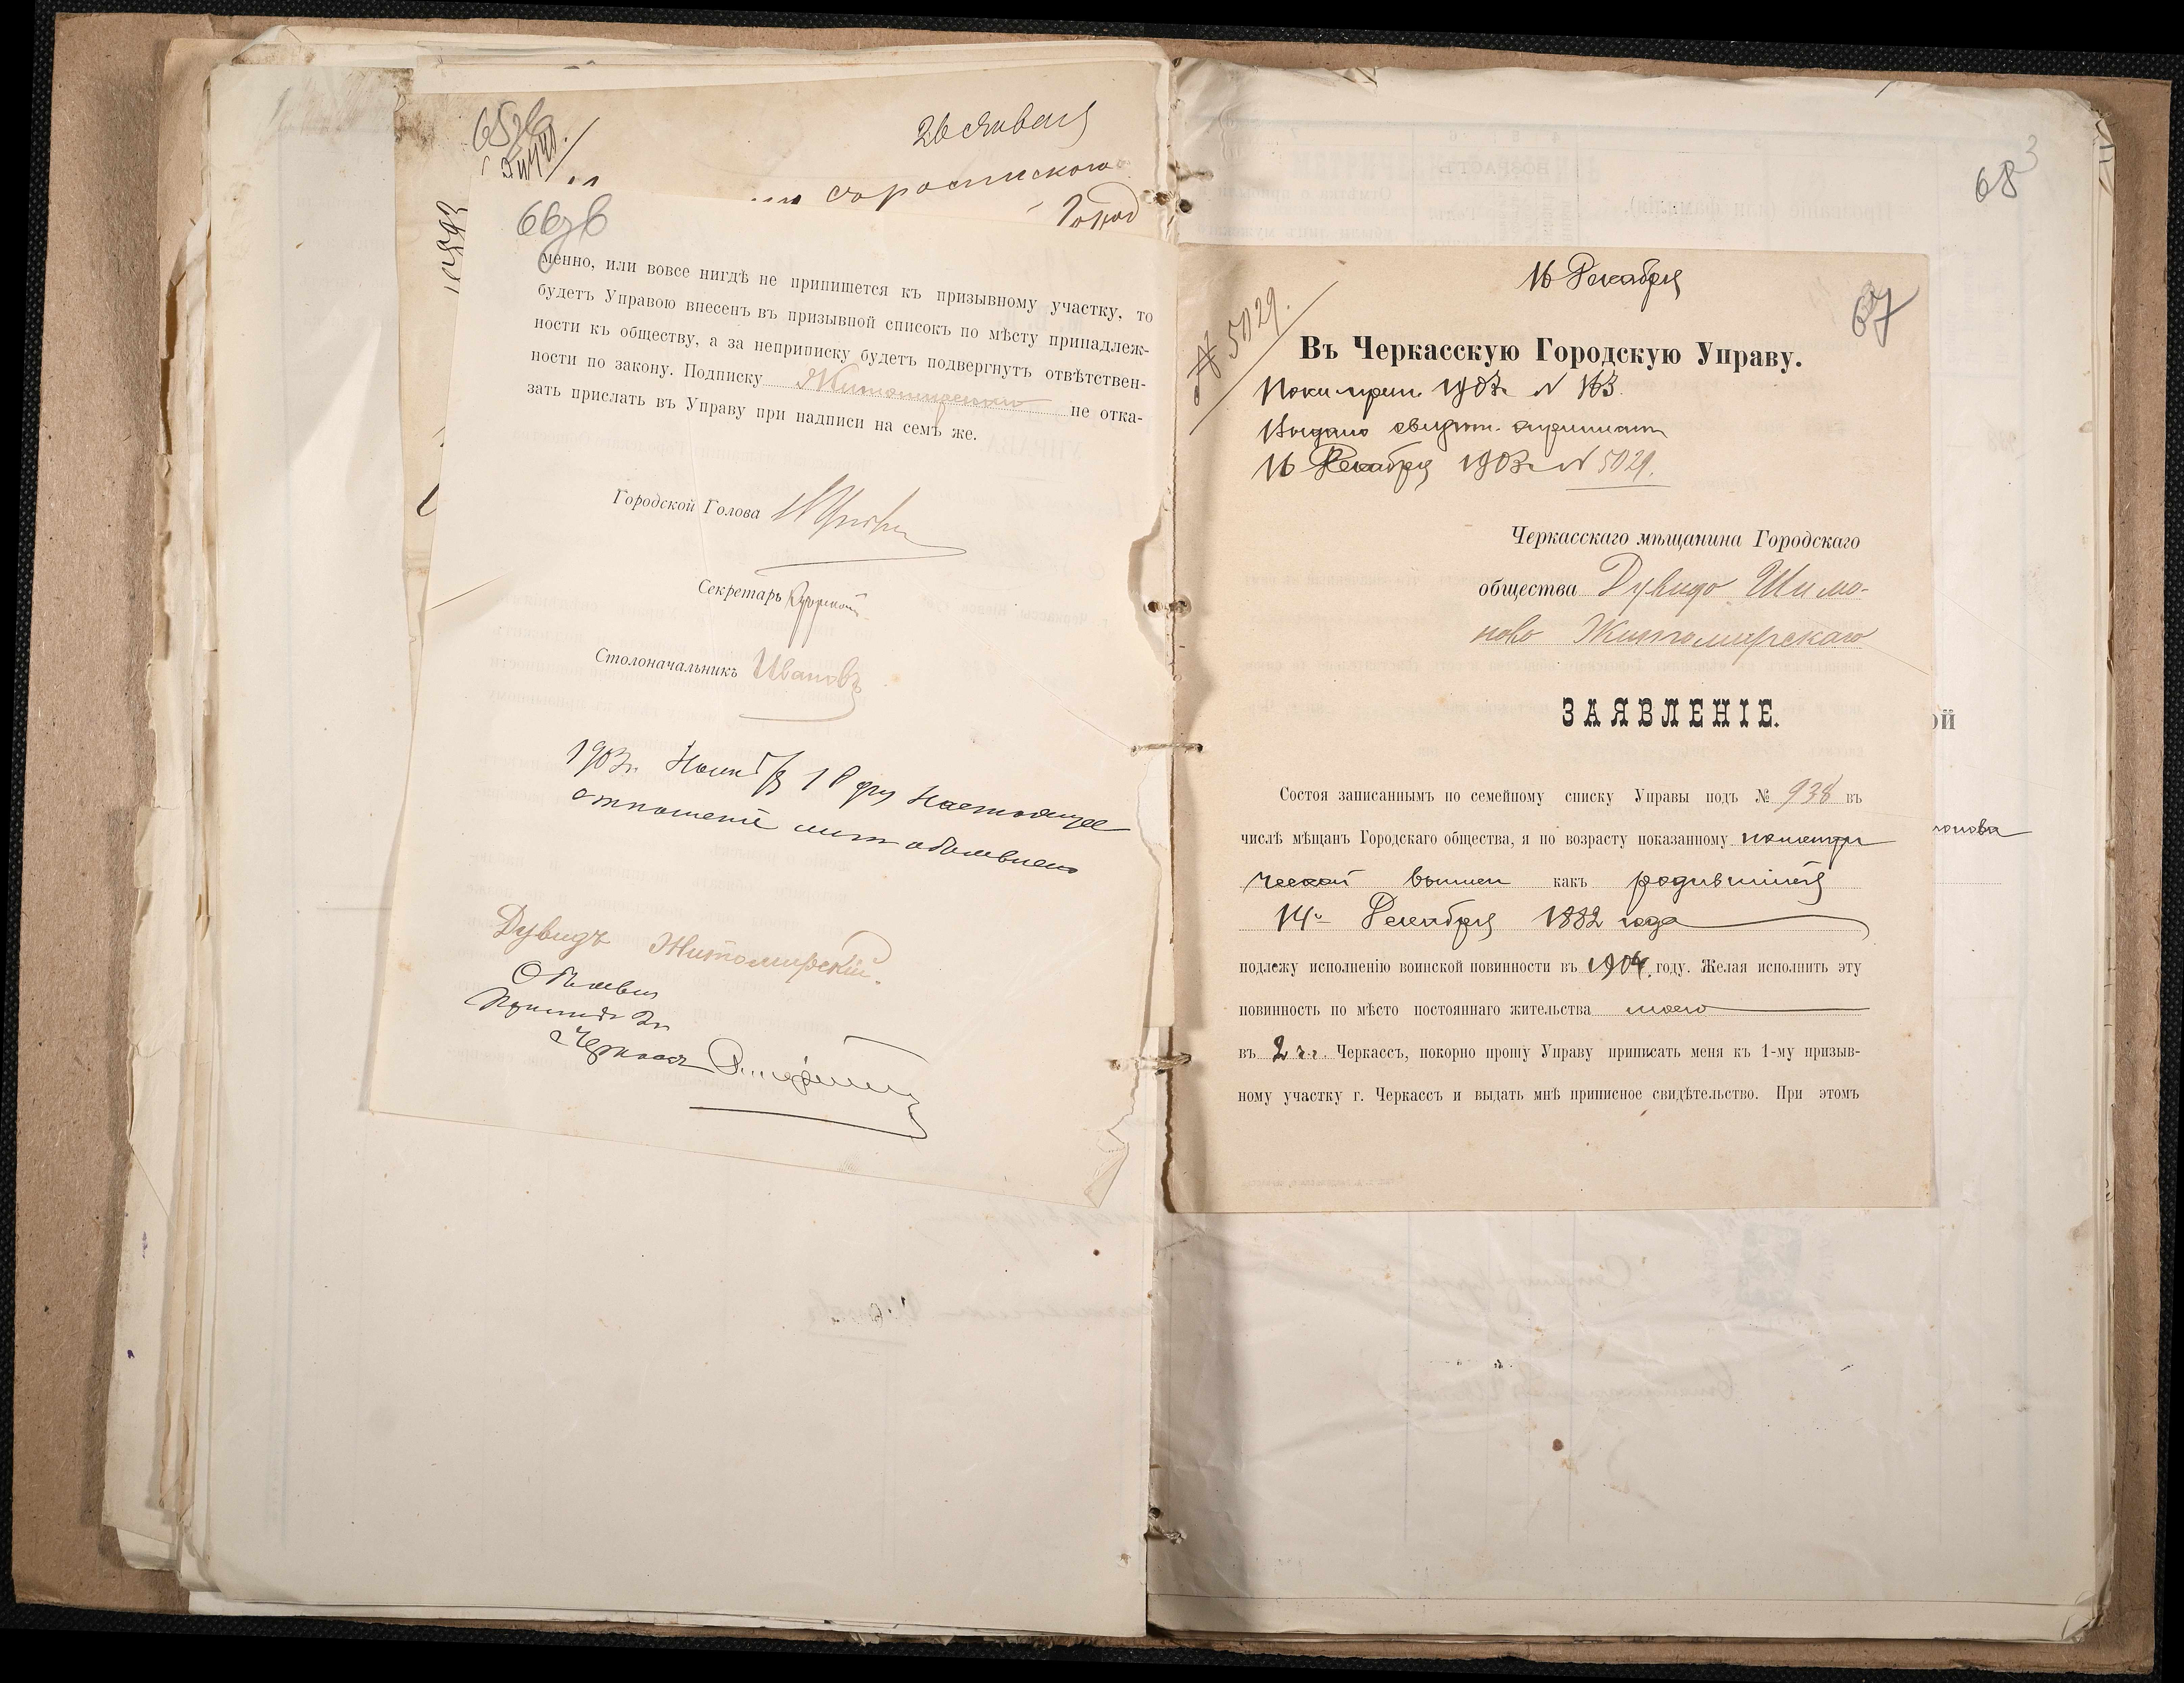 26 Января
Город
менно, или вовсе нигдѣ не припишется къ призывному участку, то
будетъ Управою внесенъ въ призывной списокъ по мѣсту принадлеж-
ности къ обществу, а за неприписку будетъ подвергнутъ отвѣтствен-
ности по закону. Подписку Житомирскаго не отка-
зать прислать въ Управу при надписи на семъ же.
Городской Голова
Секретарь
Столоначальникъ Ивановъ
1903г. 18 дня настоящее
отношеніе мнѣ объявлено
Дувидъ Житомирскій.
Объявилъ
68
67
16 Декабря
№ 5029.
Въ Черкасскую Городскую Управу.
1903г. № 163
Выдано
16 Декабря 1903г. № 5029.
Черкасскаго мѣщанина Городскаго
общества Дувида Шимо-
нова Житомирскаго
ЗАЯВЛЕНІЕ.
Состоя записаннымъ по семейному списку Управы подъ № 938 въ
числѣ мѣщанъ Городскаго общества, я по возрасту показанному
какъ родившійся
14го Декабря 1882 года
подлежу исполненію воинской повинности въ 1904 году. Желая исполнить эту
повинность по мѣсто постояннаго жительства моего
въ г. Черкассъ, покорно прошу Управу приписать меня къ 1-му призыв-
ному участку г. Черкассъ и выдать мнѣ приписное свидѣтельство. При этомъ